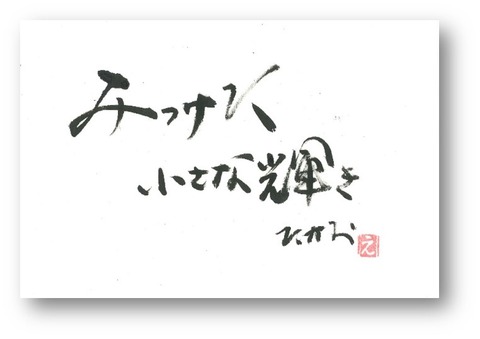 みつけた
小さな輝き
たかお え